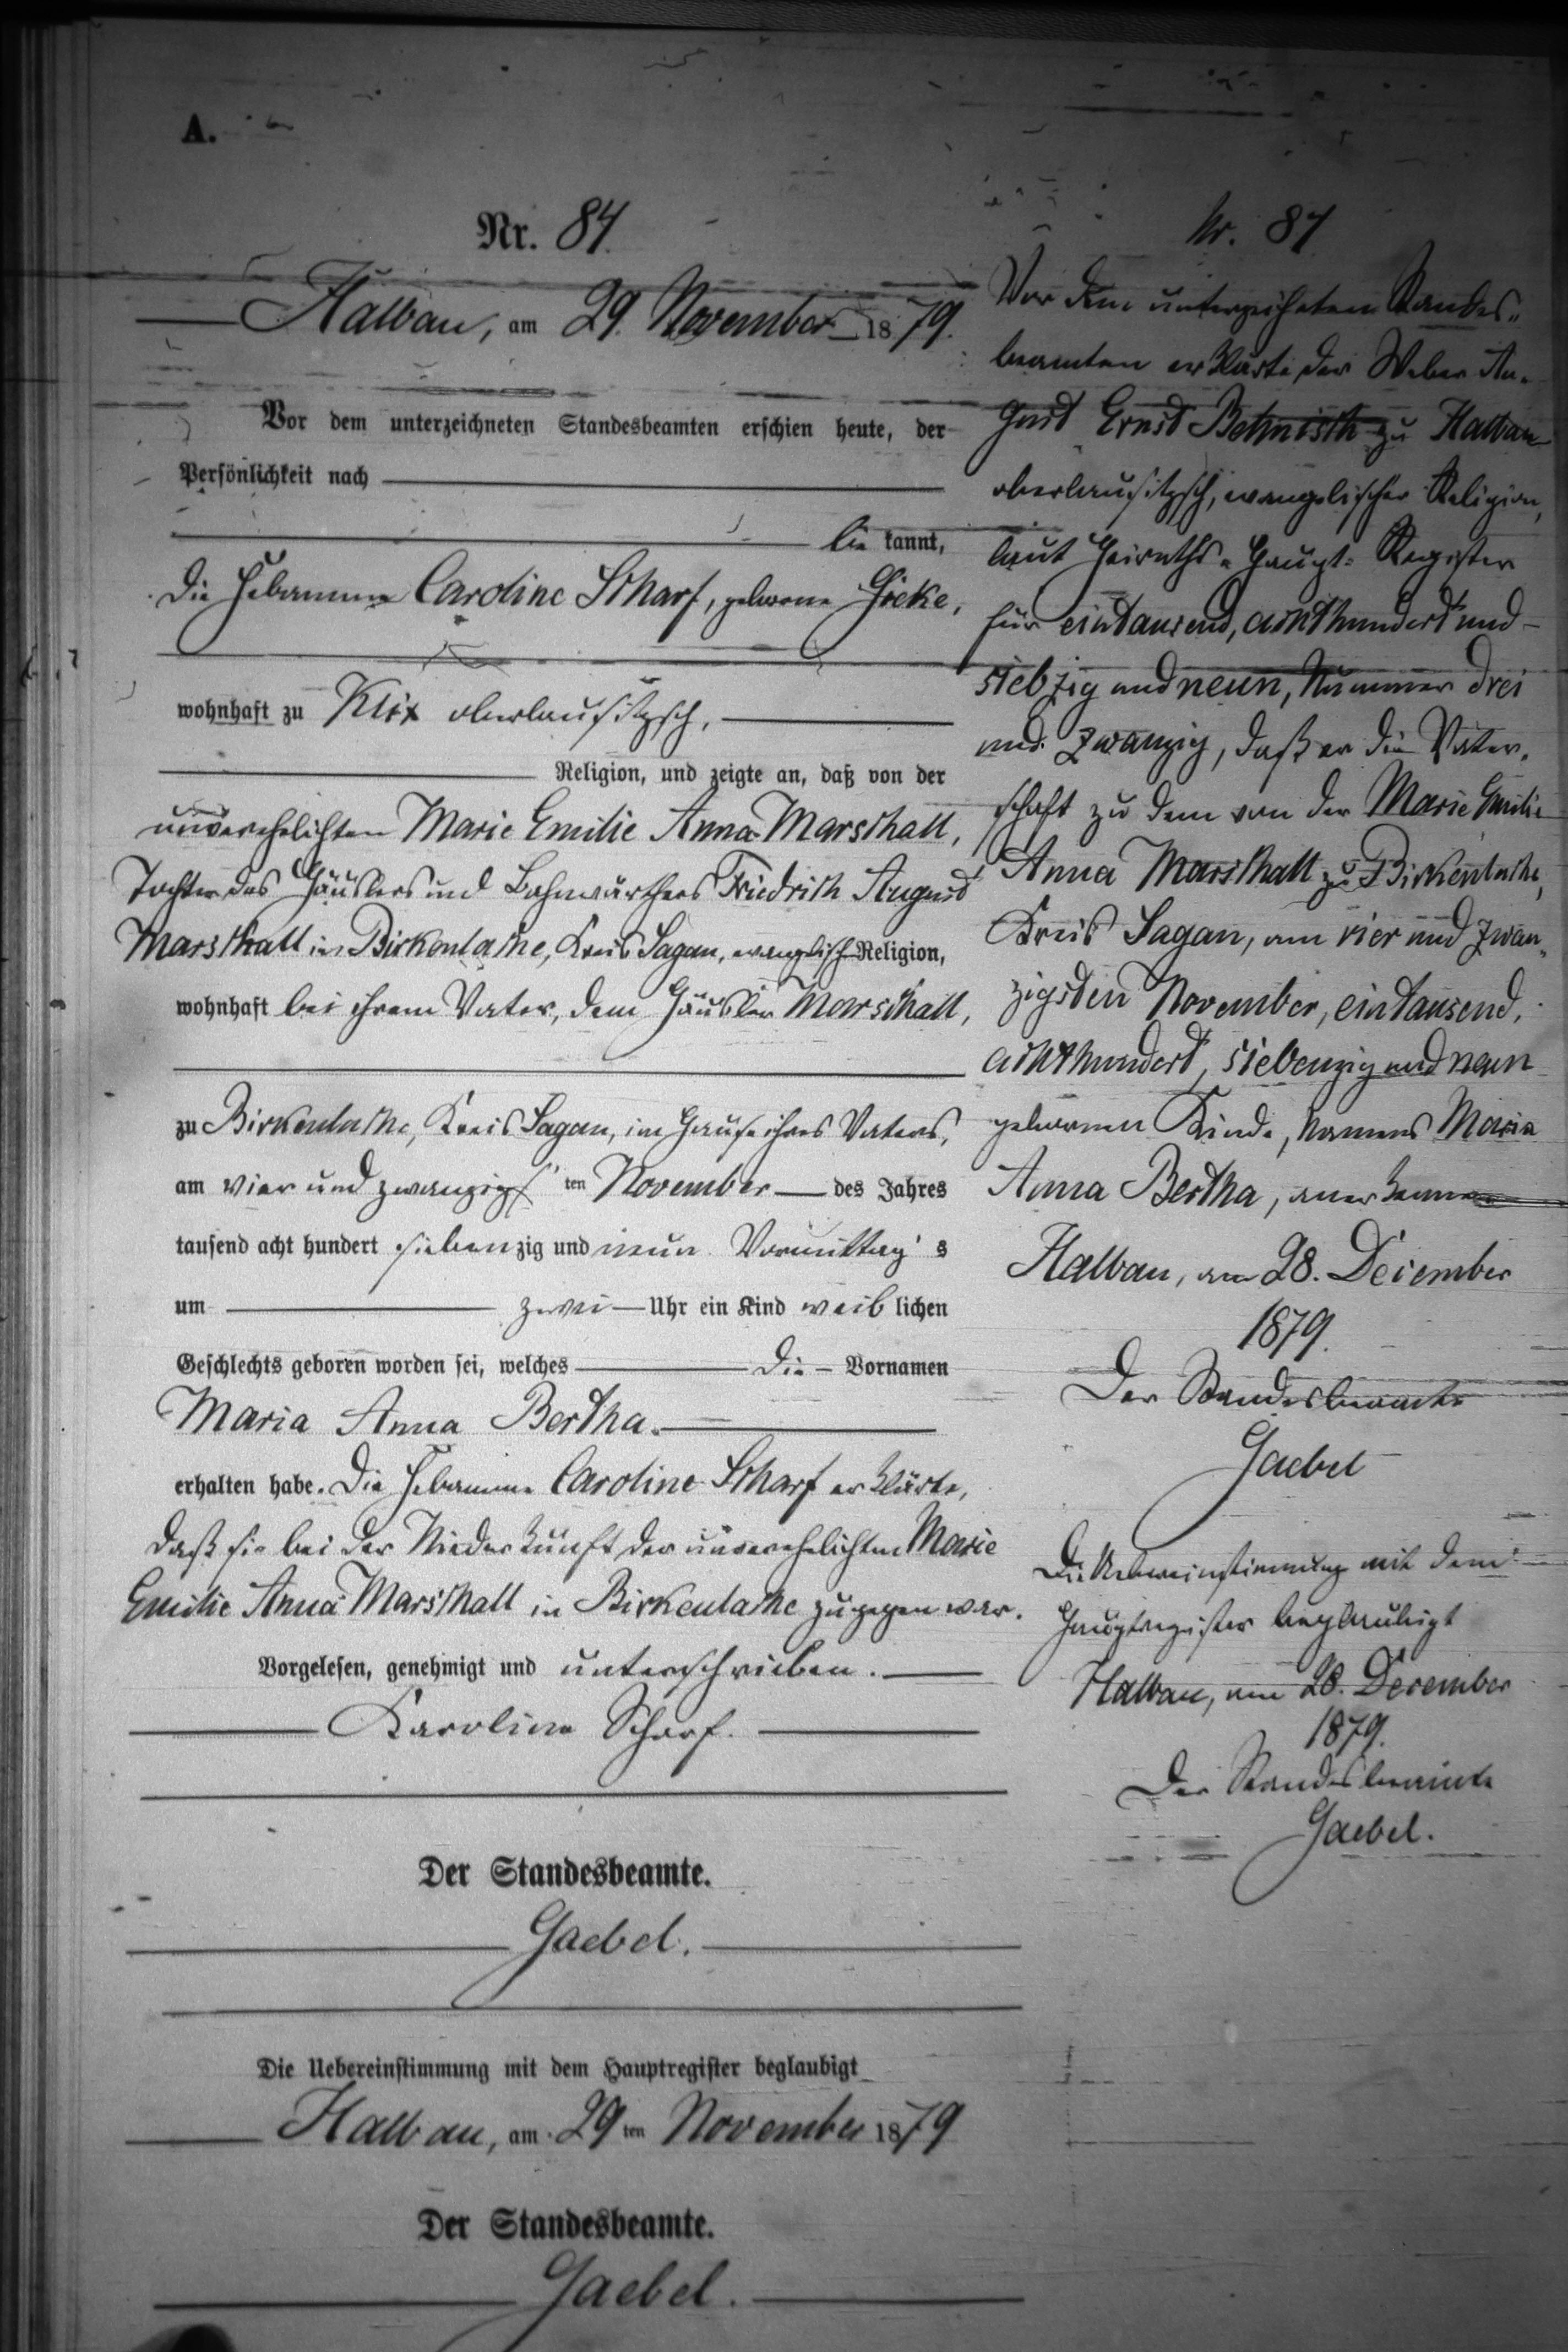 A.
Nr. 84.
Halbau, am 29. November 1879.
Vor dem unterzeichneten Standesbeamten erschien heute, der
Persönlichkeit nach
be kannt,
die Hebamme Caroline Scharf, geborene Gieke,
wohnhaft zu Klix oberlausitzsch,
Religion, und zeigte an, daß von der
unverehelichten Marie Emilie Anna Marschall,
Tochter des Häuslers und Bahnwärthers Friedrich August
Marschall in Birkenlache, Kreis Sagan, evangelisch Religion,
wohnhaft bei ihrem Vater, dem Häusler Marschall,
zu Birkenlache, Kreis Sagan, im Hause ihres Vaters,
am vier und zwanzigs ten November des Jahres
tausend acht hundert siebenzig und neun Vormittag s
um zwei Uhr ein Kind weib lichen
Geschlechts geboren worden sei, welches die Vornamen
Maria Anna Bertha.
erhalten habe. Die Hebamme Caroline Scharf erklärte,
daß sie bei der Niederkunft der unverehelichten Marie
Emilie Anna Marschall in Birkenlache zugegen war.
Vorgelesen, genehmigt und unterschrieben.
Karoline Scharf.
Der Standesbeamte.
Gaebel.
Die Uebereinstimmung mit dem Hauptregister beglaubigt
Halbau, am 29 ten November 1879
Der Standesbeamte.
Gaebel.
Nr. 84
Vor dem unterzeichneten Standes-
beamten erklärte der Weber Au-
gust Ernst Behnisch zu Halbau
oberlausitzsch, evangelischer Religion,
laut Heiraths-Haupt-Register
für eintausend, achthundert und
siebzig und neun, Nummer drei
und zwanzig, daß er die Vater-
schaft zu dem von der Marie Emilie
Anna Marschall zu Birkenlache,
Kreis Sagan, am vier und zwan-
zigsten November, eintausend,
achthundert, siebenzig und neun
geborenen Kinde, Namens Maria
Anna Bertha, anerkenne
Halbau, am 28. December
1879.
Der Standesbeamte
Gaebel
Die Uebereinstimmung mit dem
Hauptregister beglaubigt
Halbau, am 28. December
1879.
Der Standesbeamte
Gaebel.